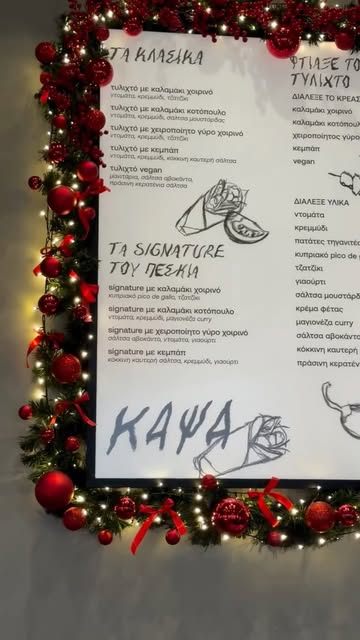 ΤΑ ΚΛΑΣΙΚΑ
τυλιχτό με καλαμάκι χοιρινό
ντομάτα, κρεμμύδι, τζατζίκι
τυλιχτό με καλαμάκι κοτόπουλο
ντομάτα, κρεμμύδι, σάλτσα μουστάρδας
τυλιχτό με χειροποίητο γύρο χοιρινό
ντομάτα, κρεμμύδι, τζατζίκι
τυλιχτό με κεμπάπ
ντομάτα, κρεμμύδι, κόκκινη καυτερή σάλτσα
τυλιχτό vegan
μανιτάρια, σάλτσα αβοκάντο,
πράσινη κερατένια σάλτσα
ΤΑ SIGNATURE
ΤΟΥ ΠΕΣΚΙΑ
signature με καλαμάκι χοιρινό
κυπριακό pico de gallo, τζατζίκι
signature με καλαμάκι κοτόπουλο
ντομάτα, κρεμμύδι, μαγιονέζα curry
signature με χειροποίητο γύρο χοιρινό
σάλτσα αβοκάντο, ντομάτα, γιαούρτι
signature με κεμπάπ
κόκκινη καυτερή σάλτσα, κρεμμύδι, γιαούρτι
ΚΑΨΑ
ΦΤΙΑΞΕ ΤΟ
ΤΥΛΙΧΤΟ
ΔΙΑΛΕΞΕ ΤΟ ΚΡΕΑΣ
καλαμάκι χοιρινό
καλαμάκι κοτόπουλ
χειροποίητος γύρο
κεμπάπ
vegan
ΔΙΑΛΕΞΕ ΥΛΙΚΑ
ντομάτα
κρεμμύδι
πατάτες τηγανιτέ
κυπριακό pico de
τζατζίκι
γιαούρτι
σάλτσα μουστάρδ
κρέμα φέτας
μαγιονέζα curry
σάλτσα αβοκάντ
κόκκινη καυτερή
πράσινη κερατέν